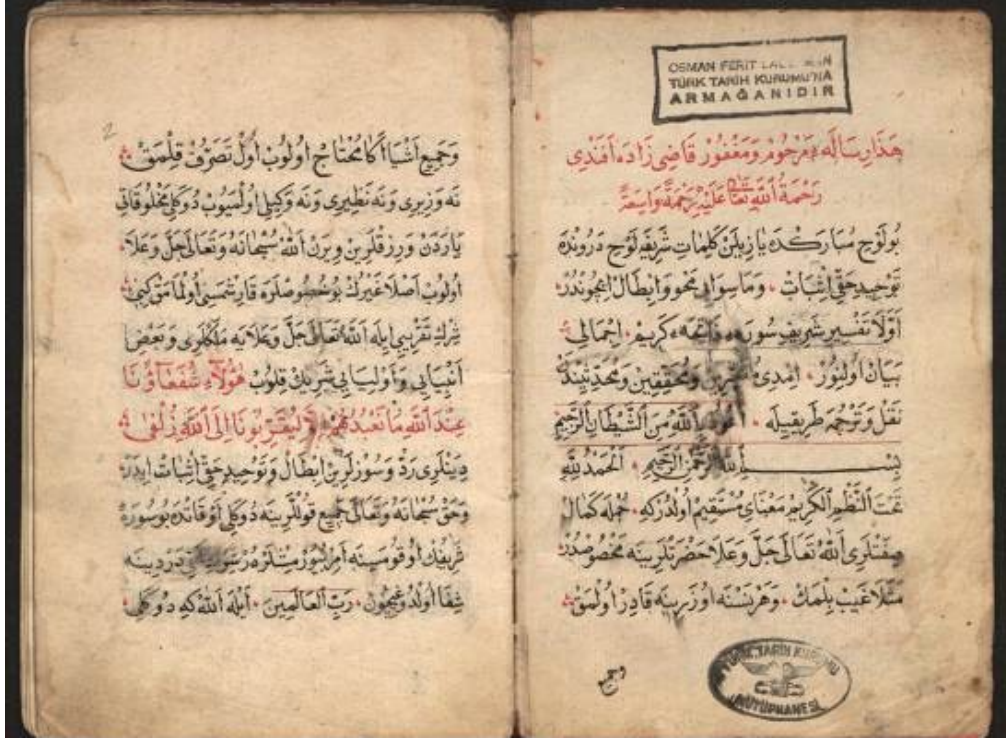 OSMAN FERİT
TÜRK TARİH KURUMU'NA
ARMAĞANIDIR
هَذَا رِسَالَهِ مَرْحُومْ وَمَغْفُورْ قَاضِي زَادَه اَفَنْدِي
رَحْمَةُ اللّٰهِ تَعَالَى عَلَيْهِ رَحْمَةً وَاسِعَةً
بُولَوْحِ مُبَارَكْدَه يَازِيلَنْ كَلِمَاتِ شَرِيفَه لَوْحِ دَرُونْدَه
تَوْحِيدِ حَقِّ اِثْبَاتْ وَمَاسِوَايِ مَحْو وَاِبْطَالْ اِيچُونْدُرْ
اَوَّلَا تَفْسِيرِ شَرِيفِ سُورَهِ فَاتِحَهِ كَرِيمْ اِجْمَالِي
بَيَانْ اُولِنُورْ اِمْدِي وَمُحَقِّقِينْ وَمُحَدِّثِينْدَنْ
نَقْل وَتَرْجُمَه طَرِيقِيلَه اَعُوذُ بِاللّٰهِ مِنَ الشَّيْطَانِ الرَّجِيمِ
بِسْمِ اللّٰهِ الرَّحْمٰنِ الرَّحِيمِ اَلْحَمْدُ لِلّٰهِ
تَمَّتِ النَّظْمِ الْكَرِيمْ مَعْنَايِ مُسْتَقِيمْ اُولْدُرْكِه جُمْلَه كَمَالْ
صِفَتْلَرِي اَللّٰهُ تَعَالَى جَلَّ وَعَلَا حَضْرَتْلَرِينَه مَخْصُوصْدُرْ
مَثَلَا غَيْب بِلْمَكْ وَهَرْ نَسْنَه اُوزَرِينَه قَادِرْ اُولْمَقْ
وجميع
TÜRK TARİH KURUMU
KÜTÜPHANESİ
2
وَجَمِيعِ اَشْيَا اَكَا مُحْتَاجْ اُولُوبْ اُولْ تَصَرُّفْ قِلْمَقْ
نَه وَزِيرِي وَنَه نَظِيرِي وَنَه وَكِيلِي اُولْمَيُوبْ دُوكَلِي مَخْلُوقَاتِي
يَارَدَنْ وَرِزِقْلَرِينْ وِيرَنْ اَللّٰهْ سُبْحَانَهُ وَتَعَالَى جَلَّ وَعَلَا
اُولُوبْ اَصْلَا غَيْرِكْ بُوخُصُوصْلَرَه قَارِشْمَسِي اُولْمَامَقْ كِبِي
شِرْكِ تَقْرِيبِي اِيلَه اَللّٰهُ تَعَالَى جَلَّ وَعَلَايَه مَلَكْلَرِي وَبَعْضِ
اَنْبِيَايِي وَاَوْلِيَايِي شَرِيكْ قِلُوبْ هٰؤُلَاءِ شُفَعَاؤُنَا
عِنْدَ اللّٰهِ مَا نَعْبُدُهُمْ اِلَّا لِيُقَرِّبُونَا اِلَى اللّٰهِ زُلْفَى
دِينْلَرِي رَدّْ وَسُوزْلَرِينْ اِبْطَالْ وَتَوْحِيدِ حَقِّ اِثْبَاتْ اِيدَرْ
وَحَقْ سُبْحَانَهُ وَتَعَالَى جَمِيعِ قُولْلَرِينَه دُوكَلِي اَوْقَاتْدَه بُوسُورَهِ
شَرِيفَهْنِكْ اُوقُومَسِينَه اَمْر دَرْدِينَه
شِفَا اُولْدُوغِيچُونْ رَبِّ الْعَالَمِينَ اَيْلَه اَللّٰهْ كِه دُوكَلِي